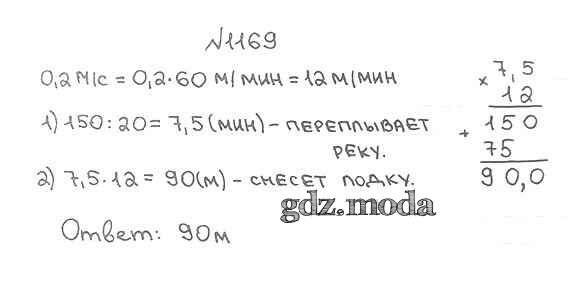 №1169
0,2 м/с = 0,2·60 м/мин = 12 м/мин
1) 150:20 = 7,5 (мин) - переплывает
реку.
2) 7,5·12 = 90(м) - снесет лодку.
Ответ: 90м
× 7,5
12
+ 150
75
90,0
gdz.moda